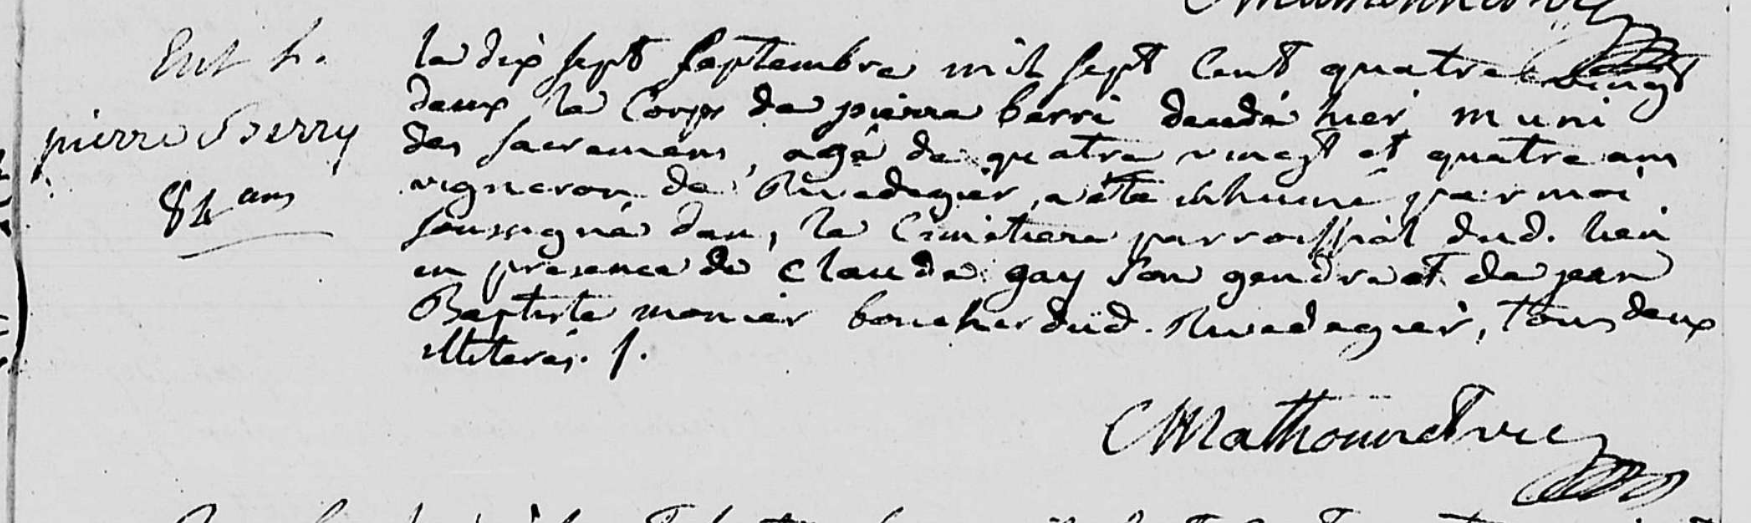 Ent h.
pierre Berry
84 ans
le dix sept septembre mil sept cent quatre vingt
deux le corps de pierre berri decedé hier muni
des sacremens, agé de quatre vingt et quatre ans
vigneron de Rivedegier, a été inhumé par moi
soussigné dans le Cimetiere parroissial dud. lieu
en presence de claude gay son gendre et de jean
Baptiste monier boucher dud. Rivedegier, tous deux
illiterés. /.